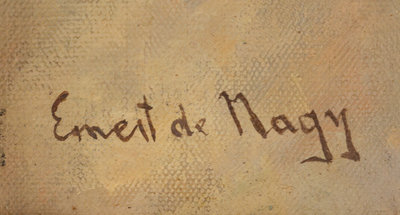 Ernest de Nagy